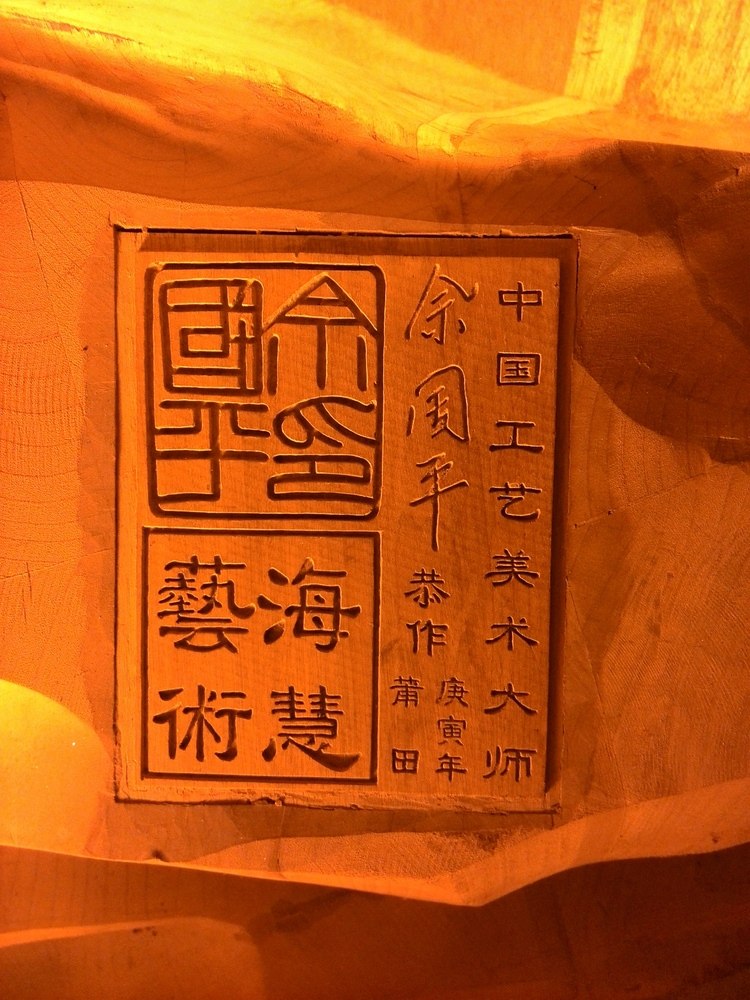 中国工艺美术大师
佘國平恭作
庚寅年
莆田
佘印
國平
海慧
藝術